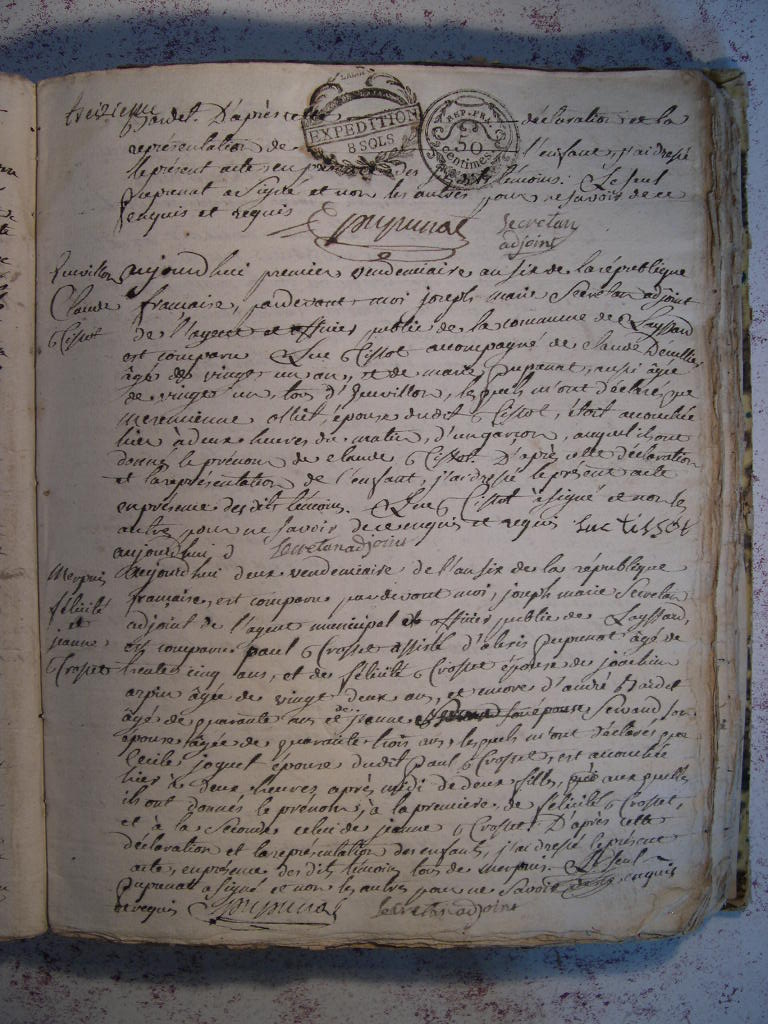 treizieme
Bardet. D'après cette déclaration et la
représentation de l'enfant, j'ai dressé
le présent acte en présence des dits témoins. Le seul
Dupenat a signé et non les autres pour ne savoir de ce
enquis et requis
LAIN
EXPEDITION
8 SOLS
REP. FRA.
50
centimes
Secretan
adjoint
aujourdhui premier vendemiaire an six de la république
Claude
Tissot
française, pardevant moi joseph marie Secretan adjoint
de l'agent et officier public de la commune de Leyssard
est comparu Luc Tissot accompagné de Claude
âgé de vingt un ans, et de marie Dupenat, aussi âgé
de vingt un, tous d' lesquels m'ont déclaré que
olliet, épouse dudit Tissot, étoit accouchée
hier à deux heures du matin, d'un garçon, auquel ils ont
donné le prénom de Claude Tissot. D'après cette déclaration
et la représentation de l'enfant, j'ai dressé le présent acte
en présence des dits témoins. Luc Tissot à signé et non les
autres pour ne savoir de ce enquis et requis Luc tissot
aujourdhui d Secretan adjoint
félicité
et
jeanne
Crosset
aujourdhui deux vendemiaire de l'an six de la république
française, est comparu pardevant moi, joseph marie Secretan
adjoint de l'agent municipal et officier public de Leyssard,
est comparu paul Crosset assisté d'alexis Dupenat âgé de
trente cinq ans, et de félicité Crosset épouse de joachim
arpin âgée de vingt deux ans, et encore d'andré Bardet
âgé de quarante ans et de jeanne son
épouse âgée de quarante trois ans, lesquels m'ont déclarés que
Cecile joquet épouse dudit Paul Crosset, est accouchée
hier à deux heures après midi de deux filles, aux quelles
ils ont donnés le prénom, à la première, de félicité Crosset,
et à la Seconde celui de jeanne Crosset. D'après cette
déclaration et la représentation des enfants, j'ai dressé le présent
acte, en présence des dits témoins tous de merpuis. Le seul
Dupenat a signé et non les autres pour ne savoir enquis
et requis Secretan adjoint